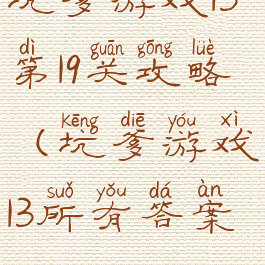 坑爹游戏13
dì guān gōng lüè
第19关攻略
kēng diē yóu xì
(坑爹游戏
suǒ yǒu dá àn
13所有答案